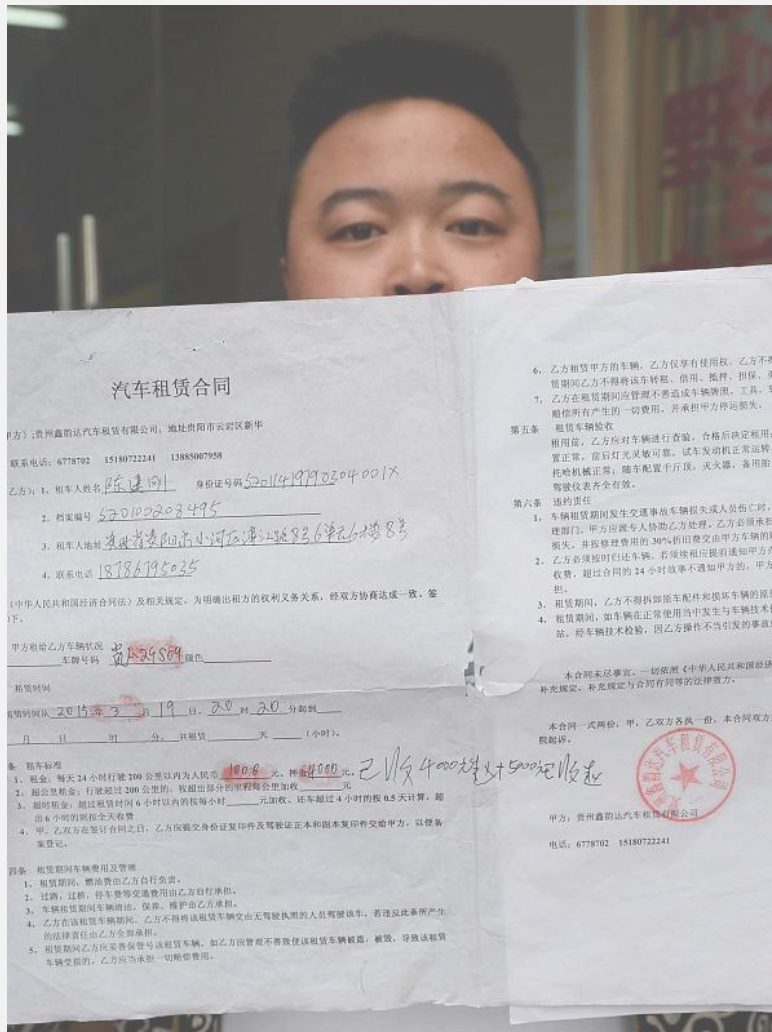 汽车租赁合同
甲方):贵州鑫韵达汽车租赁有限公司;地址贵阳市云岩区新华
联系电话:6778702 15180722241 13885007958
乙方):1、租车人姓名 陈建刚 身份证号码 52011419790304001X
2、档案编号 520100208495
3、租车人地址 贵州省贵阳市小河区漓江路8号6单元6楼8号
4、联系电话 18786795035
《中华人民共和国经济合同法》及相关规定,为明确出租方的权利义务关系,经双方协商达成一致,签
下。
甲方租给乙方车辆状况
车牌号码 颜色
租赁时间
租赁时间从 2015 年 3 月 19 日、20 时 20 分起到
月 日 时 分,共租赁 天 (小时)。
条 租车标准
1、租金:每天24小时行驶200公里以内为人民币 1000 元,押金 4000 元。 已收4000元
2、超公里租金:行驶超过200公里的,按超出部分的里程每公里加收 元。
3、超时租金:超过租赁时间6小时以内的按每小时 元加收,还车超过4小时的按0.5天计算,超
出6小时的则按全天收费
4、甲、乙双方在签订合同之日,乙方应提交身份证复印件及驾驶证正本和副本复印件交给甲方,以便备
案登记。
四条 租赁期间车辆费用及管理
1、租赁期间,燃油费由乙方自行负责。
2、过路、过桥、停车费等交通费用由乙方自行承担。
3、车辆租赁期间车辆清洁、保养、维护由乙方承担。
4、乙方在该租赁车辆期间,乙方不得将该租赁车辆交由无驾驶执照的人员驾驶该车,若违反此条所产生
的法律责任由乙方全部承担。
5、租赁期间乙方应妥善保管号该租赁车辆,如乙方应管理不善致使该租赁车辆被盗,被毁,导致该租赁
车辆受损的,乙方应当承担一切赔偿费用。
6、乙方租赁甲方的车辆,乙方仅享有使用权,乙方不得
赁期间乙方不得将该车转租、借用、抵押、担保、
7、乙方在租赁期间应管理不善造成车辆牌照,工具,车
赔偿所有产生的一切费用,并承担甲方停运损失。
第五条 租赁车辆验收
租用前,乙方应对车辆进行查验,合格后决定租用。
置正常,前后灯光灵敏可靠,试车发动机正常运转
托哈机械正常;随车配置千斤顶,灭火器,备用胎
驾驶仪表齐全有效。
第六条 违约责任
1、车辆租赁期间发生交通事故车辆损失或人员伤亡时,
理部门,甲方应派专人协助乙方处理。乙方必须承担
损失,并按修理费用的30%折旧费交由甲方车辆的
2、乙方必须按时归还车辆,若须续租应提前通知甲方
收费,超过合同的24小时故事不通知甲方的,甲方
担。
3、租赁期间,乙方不得拆卸原车配件和损坏车辆的原
4、租赁期间,如车辆在正常使用当中发生与车辆技术
站,经车辆技术检验,因乙方操作不当引发的事故
本合同未尽事宜,一切依照《中华人民共和国经济
补充规定,补充规定与合同有同等的法律效力。
本合同一式两份,甲、乙双方各执一份,本合同双方
院起诉。
甲方:贵州鑫韵达汽车租赁有限公司
电话:6778702 15180722241